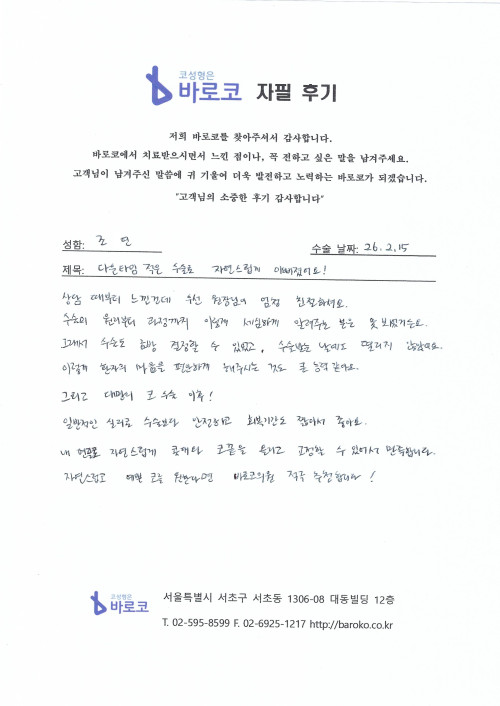 코성형은
바로코 자필 후기
저희 바로코를 찾아주셔서 감사합니다.
바로코에서 치료받으시면서 느낀 점이나, 꼭 전하고 싶은 말을 남겨주세요.
고객님이 남겨주신 말씀에 귀 기울여 더욱 발전하고 노력하는 바로코가 되겠습니다.
"고객님의 소중한 후기 감사합니다"
성함: 조 연 수술 날짜: 26.2.15
제목: 다운타임 적은 수술로 자연스럽게 예뻐졌어요!
상담 때부터 느낀건데 우선 원장님이 엄청 친절하셔요.
수술의 원리부터 과정까지 이렇게 세심하게 알려주는 분은 못 봤거든요.
그래서 수술도 바로 결정할 수 있었고, 수술받는 날에도 떨리지 않았어요.
이렇게 환자의 마음을 편안하게 해주시는 것도 큰 능력 같아요.
그리고 대망의 코 수술 이후!
일반적인 실리콘 수술보다 안전하고 회복기간도 짧아서 좋아요.
내 연골로 자연스럽게 콧대와 코끝을 올리고 교정할 수 있어서 만족합니다.
자연스럽고 예쁜 코를 원한다면 바로코의원 적극 추천합니다!
코성형은
바로코
서울특별시 서초구 서초동 1306-08 대동빌딩 12층
T. 02-595-8599 F. 02-6925-1217 http://baroko.co.kr